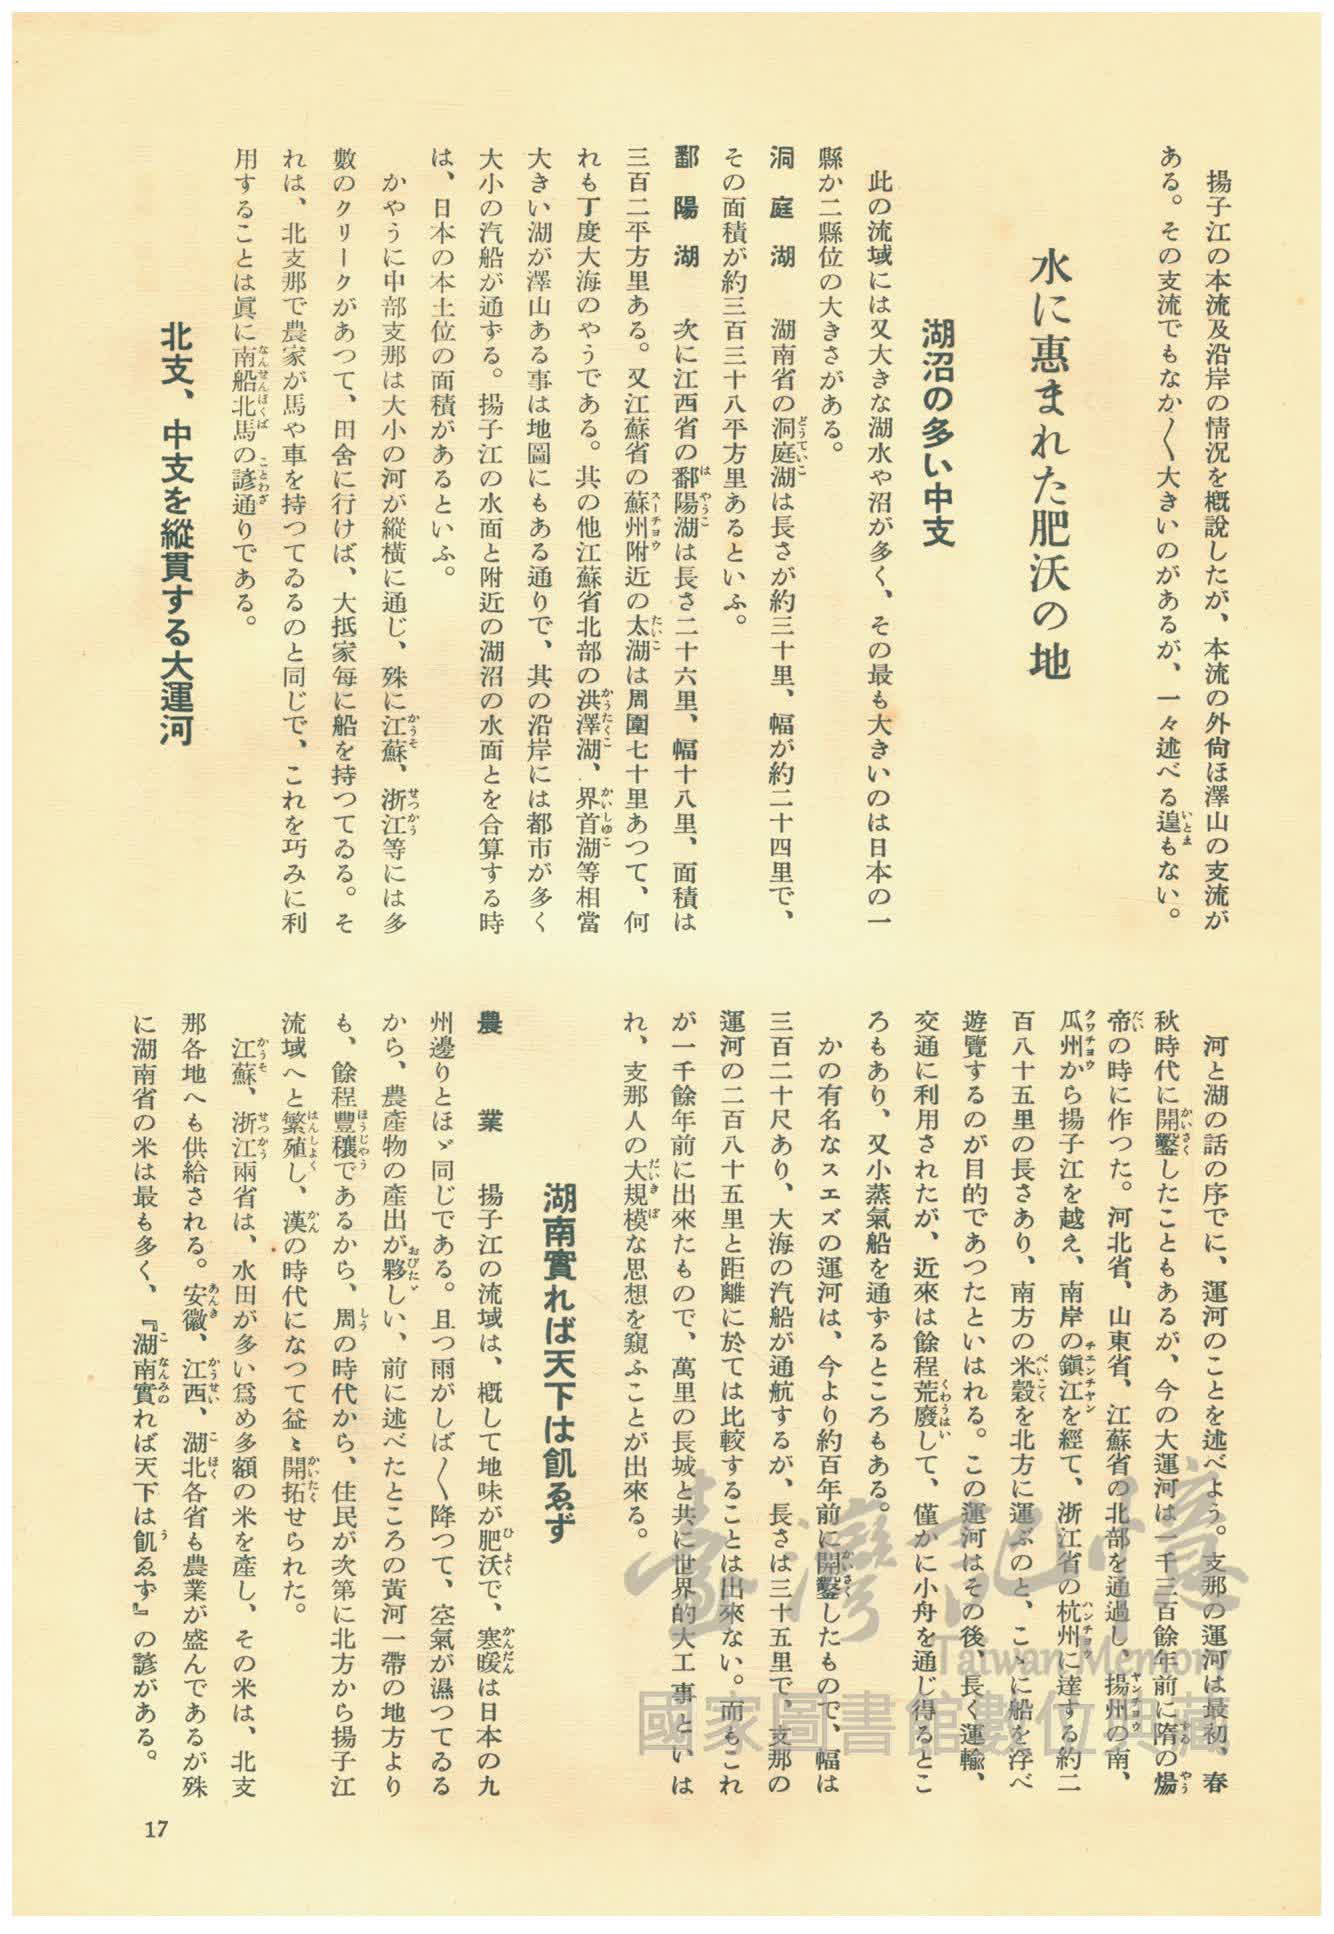 揚子江の本流及沿岸の情況を概說したが、本流の外尙ほ澤山の支流が
ある。その支流でもなか〱大きいのがあるが、一々述べる遑もない。
水に惠まれた肥沃の地
湖沼の多い中支
此の流域には又大きな湖水や沼が多く、その最も大きいのは日本の一
縣か二縣位の大きさがある。
洞庭湖　湖南省の洞庭湖は長さが約三十里、幅が約二十四里で、
その面積が約三百三十八平方里あるといふ。
鄱陽湖　次に江西省の鄱陽湖は長さ二十六里、幅十八里、面積は
三百二平方里ある。又江蘇省の蘇州附近の太湖は周圍七十里あつて、何
れも丁度大海のやうである。其の他江蘇省北部の洪澤湖、界首湖等相當
大きい湖が澤山ある事は地圖にもある通りで、其の沿岸には都市が多く
大小の汽船が通ずる。揚子江の水面と附近の湖沼の水面とを合算する時
は、日本の本土位の面積があるといふ。
かやうに中部支那は大小の河が縱橫に通じ、殊に江蘇、浙江等には多
數のクリークがあつて、田舍に行けば、大抵家每に船を持つてゐる。そ
れは、北支那で農家が馬や車を持つてゐるのと同じで、これを巧みに利
用することは眞に南船北馬の諺通りである。
北支、中支を縱貫する大運河
河と湖の話の序でに、運河のことを述べよう。支那の運河は最初、春
秋時代に開鑿したこともあるが、今の大運河は一千三百餘年前に隋の煬
帝の時に作つた。河北省、山東省、江蘇省の北部を通過し、揚州の南、
瓜州から揚子江を越え、南岸の鎭江を經て、浙江省の杭州に達する約二
百八十五里の長さあり、南方の米穀を北方に運ぶのと、こゝに船を浮べ
遊覽するのが目的であつたといはれる。この運河はその後、長く運輸、
交通に利用されたが、近來は餘程荒廢して、僅かに小舟を通じ得るとこ
ろもあり、又小蒸氣船を通ずるところもある。
かの有名なスエズの運河は、今より約百年前に開鑿したもので、幅は
三百二十尺あり、大海の汽船が通航するが、長さは三十五里で、支那の
運河の二百八十五里と距離に於ては比較することは出來ない。而もこれ
が一千餘年前に出來たもので、萬里の長城と共に世界的大工事といは
れ、支那人の大規模な思想を窺ふことが出來る。
湖南實れば天下は飢ゑず
農業　揚子江の流域は、槪して地味が肥沃で、寒暖は日本の九
州邊りとほゞ同じである。且つ雨がしば〱降つて、空氣が濕つてゐる
から、農產物の產出が夥しい、前に述べたところの黃河一帶の地方より
も、餘程豐穰であるから、周の時代から、住民が次第に北方から揚子江
流域へと繁殖し、漢の時代になつて益〻開拓せられた。
江蘇、浙江兩省は、水田が多い爲め多額の米を產し、その米は、北支
那各地へも供給される。安徽、江西、湖北各省も農業が盛んであるが殊
に湖南省の米は最も多く、『湖南實れば天下は飢ゑず』の諺がある。
17
臺灣記憶
Taiwan Memory
國家圖書館數位典藏